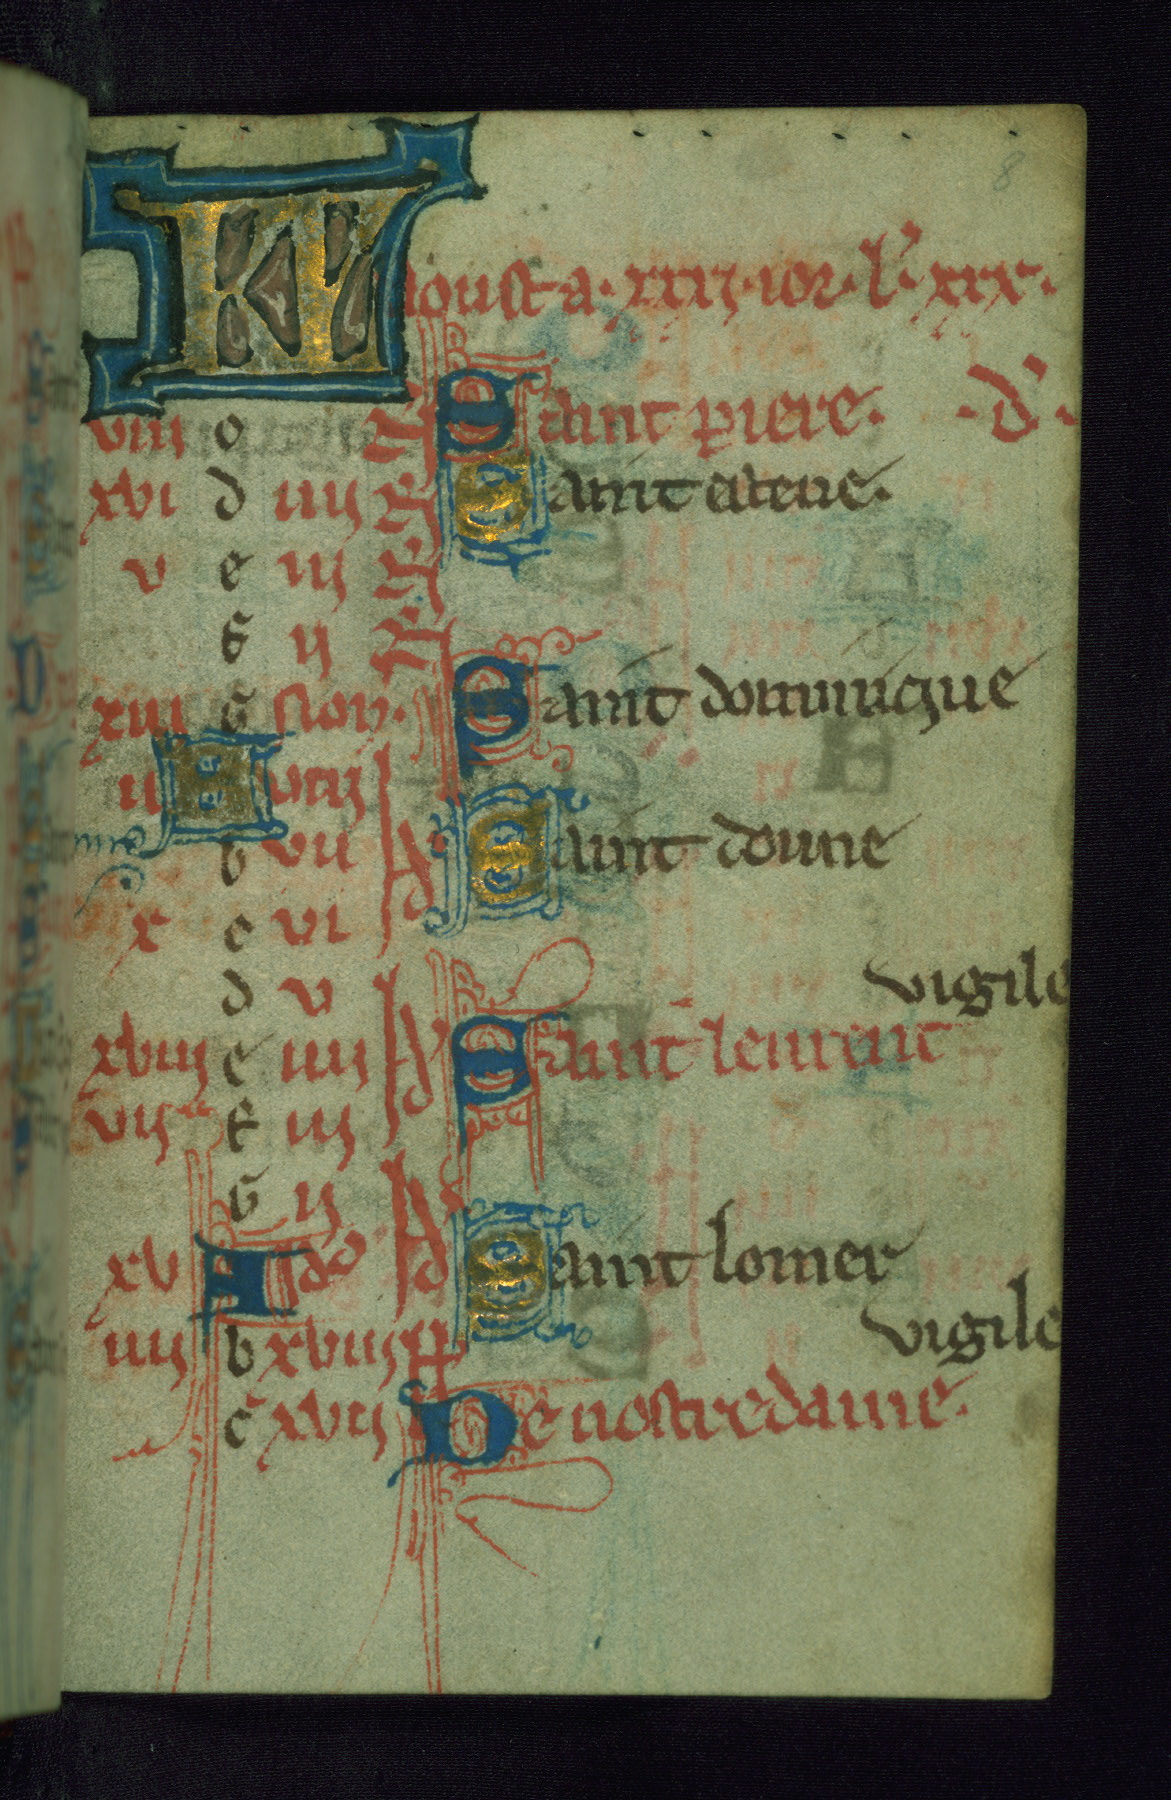 8
KL aoust a · xxxi · ior · l' · xxx ·
viii c Saint piere · · d' ·
xvi d iiii Saint etiene ·
v e iii
f ii
xiii g non · Saint dominique
ii A viii
b vii Saint donne
x c vi
d v vigile
xviii e iiii Saint leurent
vii f iii
g ii
xv A id' Saint lomer
iiii b xviiii vigile
c xviii De nostre dame ·